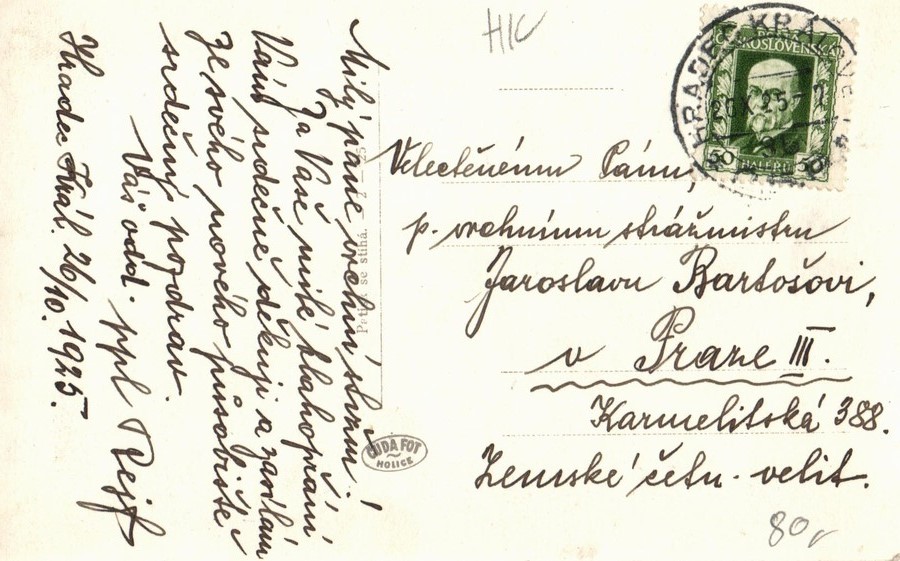 HK
Milý pane vrchní stržm.!
Za Vaše milé blahopřání
Vám srdečně děkuji a zasílám
ze svého nového působiště
srdečný pozdrav.
Váš odd. ppl Rejf
Hradec Král. 26/10. 1925.
Velectěnému Pánu,
p. vrchnímu strážmistru
Jaroslavu Bartošovi,
v Praze III.
Karmelitská 388.
Zemské četn. velit.
80,-
GUDA FOT
HOLICE
se stíhá.
HRADEC KRÁLOVÉ
26.X.25
ČESKOSLOVENSKÁ
50 HALÉŘŮ 50